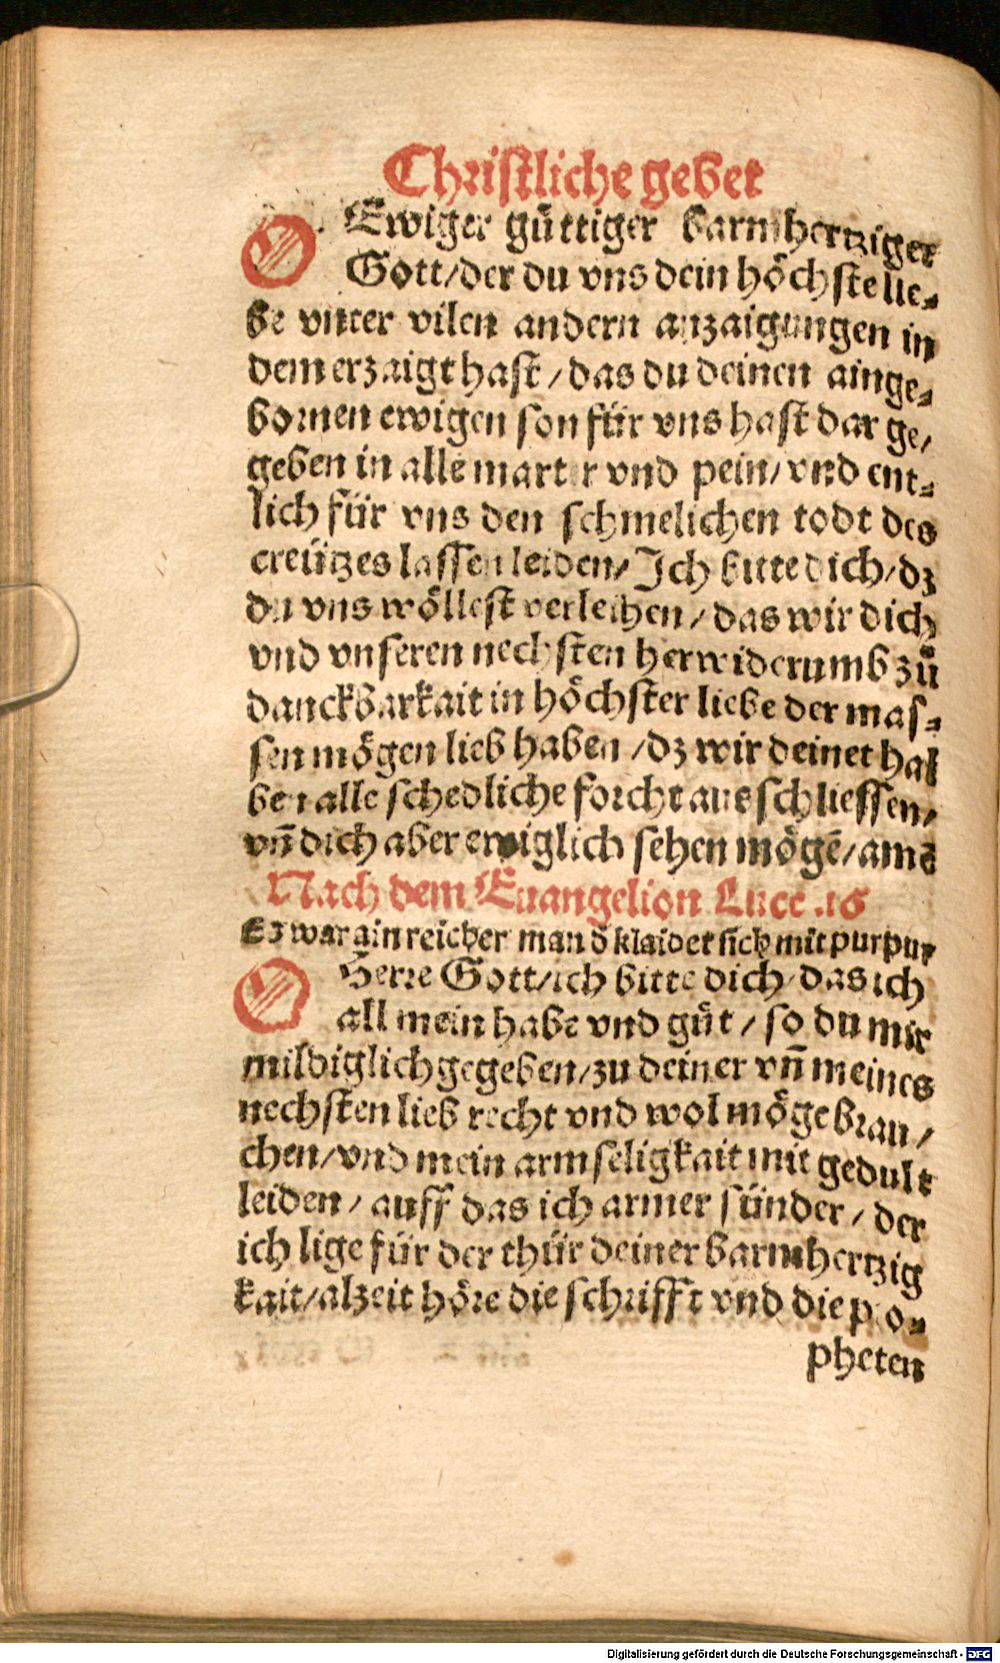 Christliche gebet
O Ewiger güttiger barmhertziger
Gott/der du vns dein höchste lie-
be vnter vilen andern anzaigungen in
dem erzaigt hast/das du deinen ainge-
bornen ewigen son für vns hast dar ge/
geben in alle marter vnd pein/vnd ent-
lich für vns den schmelichen todt des
creützes lassen leiden/Ich bitte dich/dz
du vns wöllest verleihen/das wir dich
vnd vnseren nechsten herwiderumb zů
danckbarkait in höchster liebe der mas-
sen mögen lieb haben/dz wir deinet hal
ben alle schedliche forcht ausschliessen/
vñ dich aber ewiglich sehen mögē/amē
Nach dem Euangelion Luce .16
Es war ain reicher man d̄ klaidet sich mit purpur
O Herre Gott/ich bitte dich das ich
all mein habe vnd gůt/so du mir
mildiglich gegeben/zu deiner vñ meines
nechsten lieb recht vnd wol möge brau/
chen/vnd mein armseligkait mit gedult
leiden/auff das ich armer sünder/der
ich lige für der thür deiner barmhertzig
kait/alzeit höre die schrifft vnd die pro-
pheten
Digitalisierung gefördert durch die Deutsche Forschungsgemeinschaft - DFG